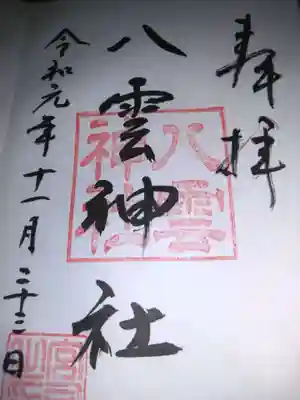 奉拝
八雲神社
八雲神社
令和元年十一月二十三日